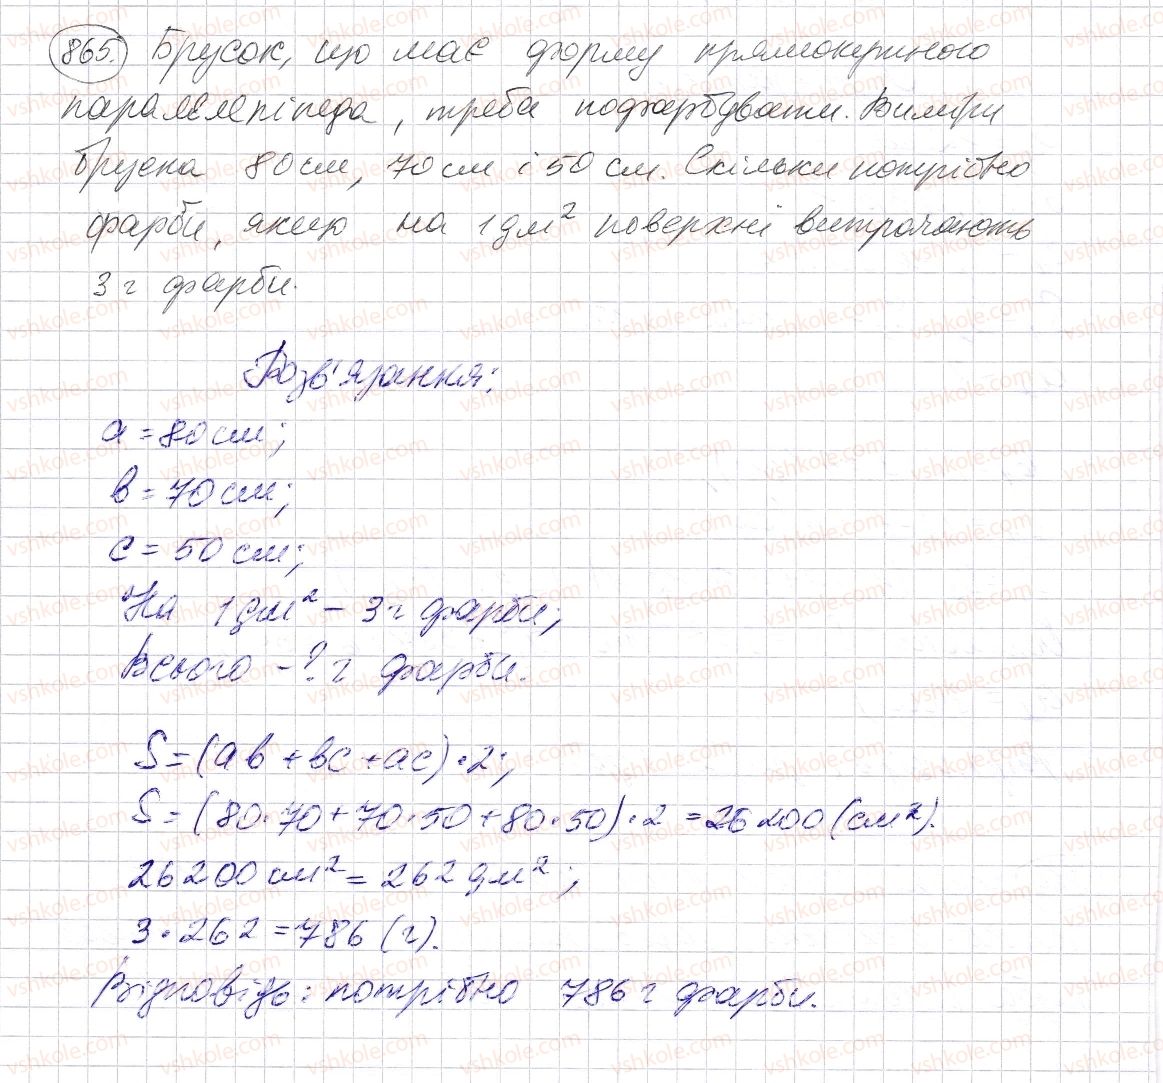 865. Брусок, що має форму прямокутного
паралелепіпеда, треба пофарбувати. Виміри
бруска 80 см, 70 см і 50 см. Скільки потрібно
фарби, якщо на 1 дм² поверхні витрачають
3 г фарби.
Розв'язання:
a = 80 см;
в = 70 см;
с = 50 см;
На 1 дм² – 3 г фарби;
Всього – ? г фарби.
S = (ав + вс + ас) · 2;
S = (80 · 70 + 70 · 50 + 80 · 50) · 2 = 26 200 (см²).
26 200 см² = 262 дм²;
3 · 262 = 786 (г).
Відповідь: потрібно 786 г фарби.